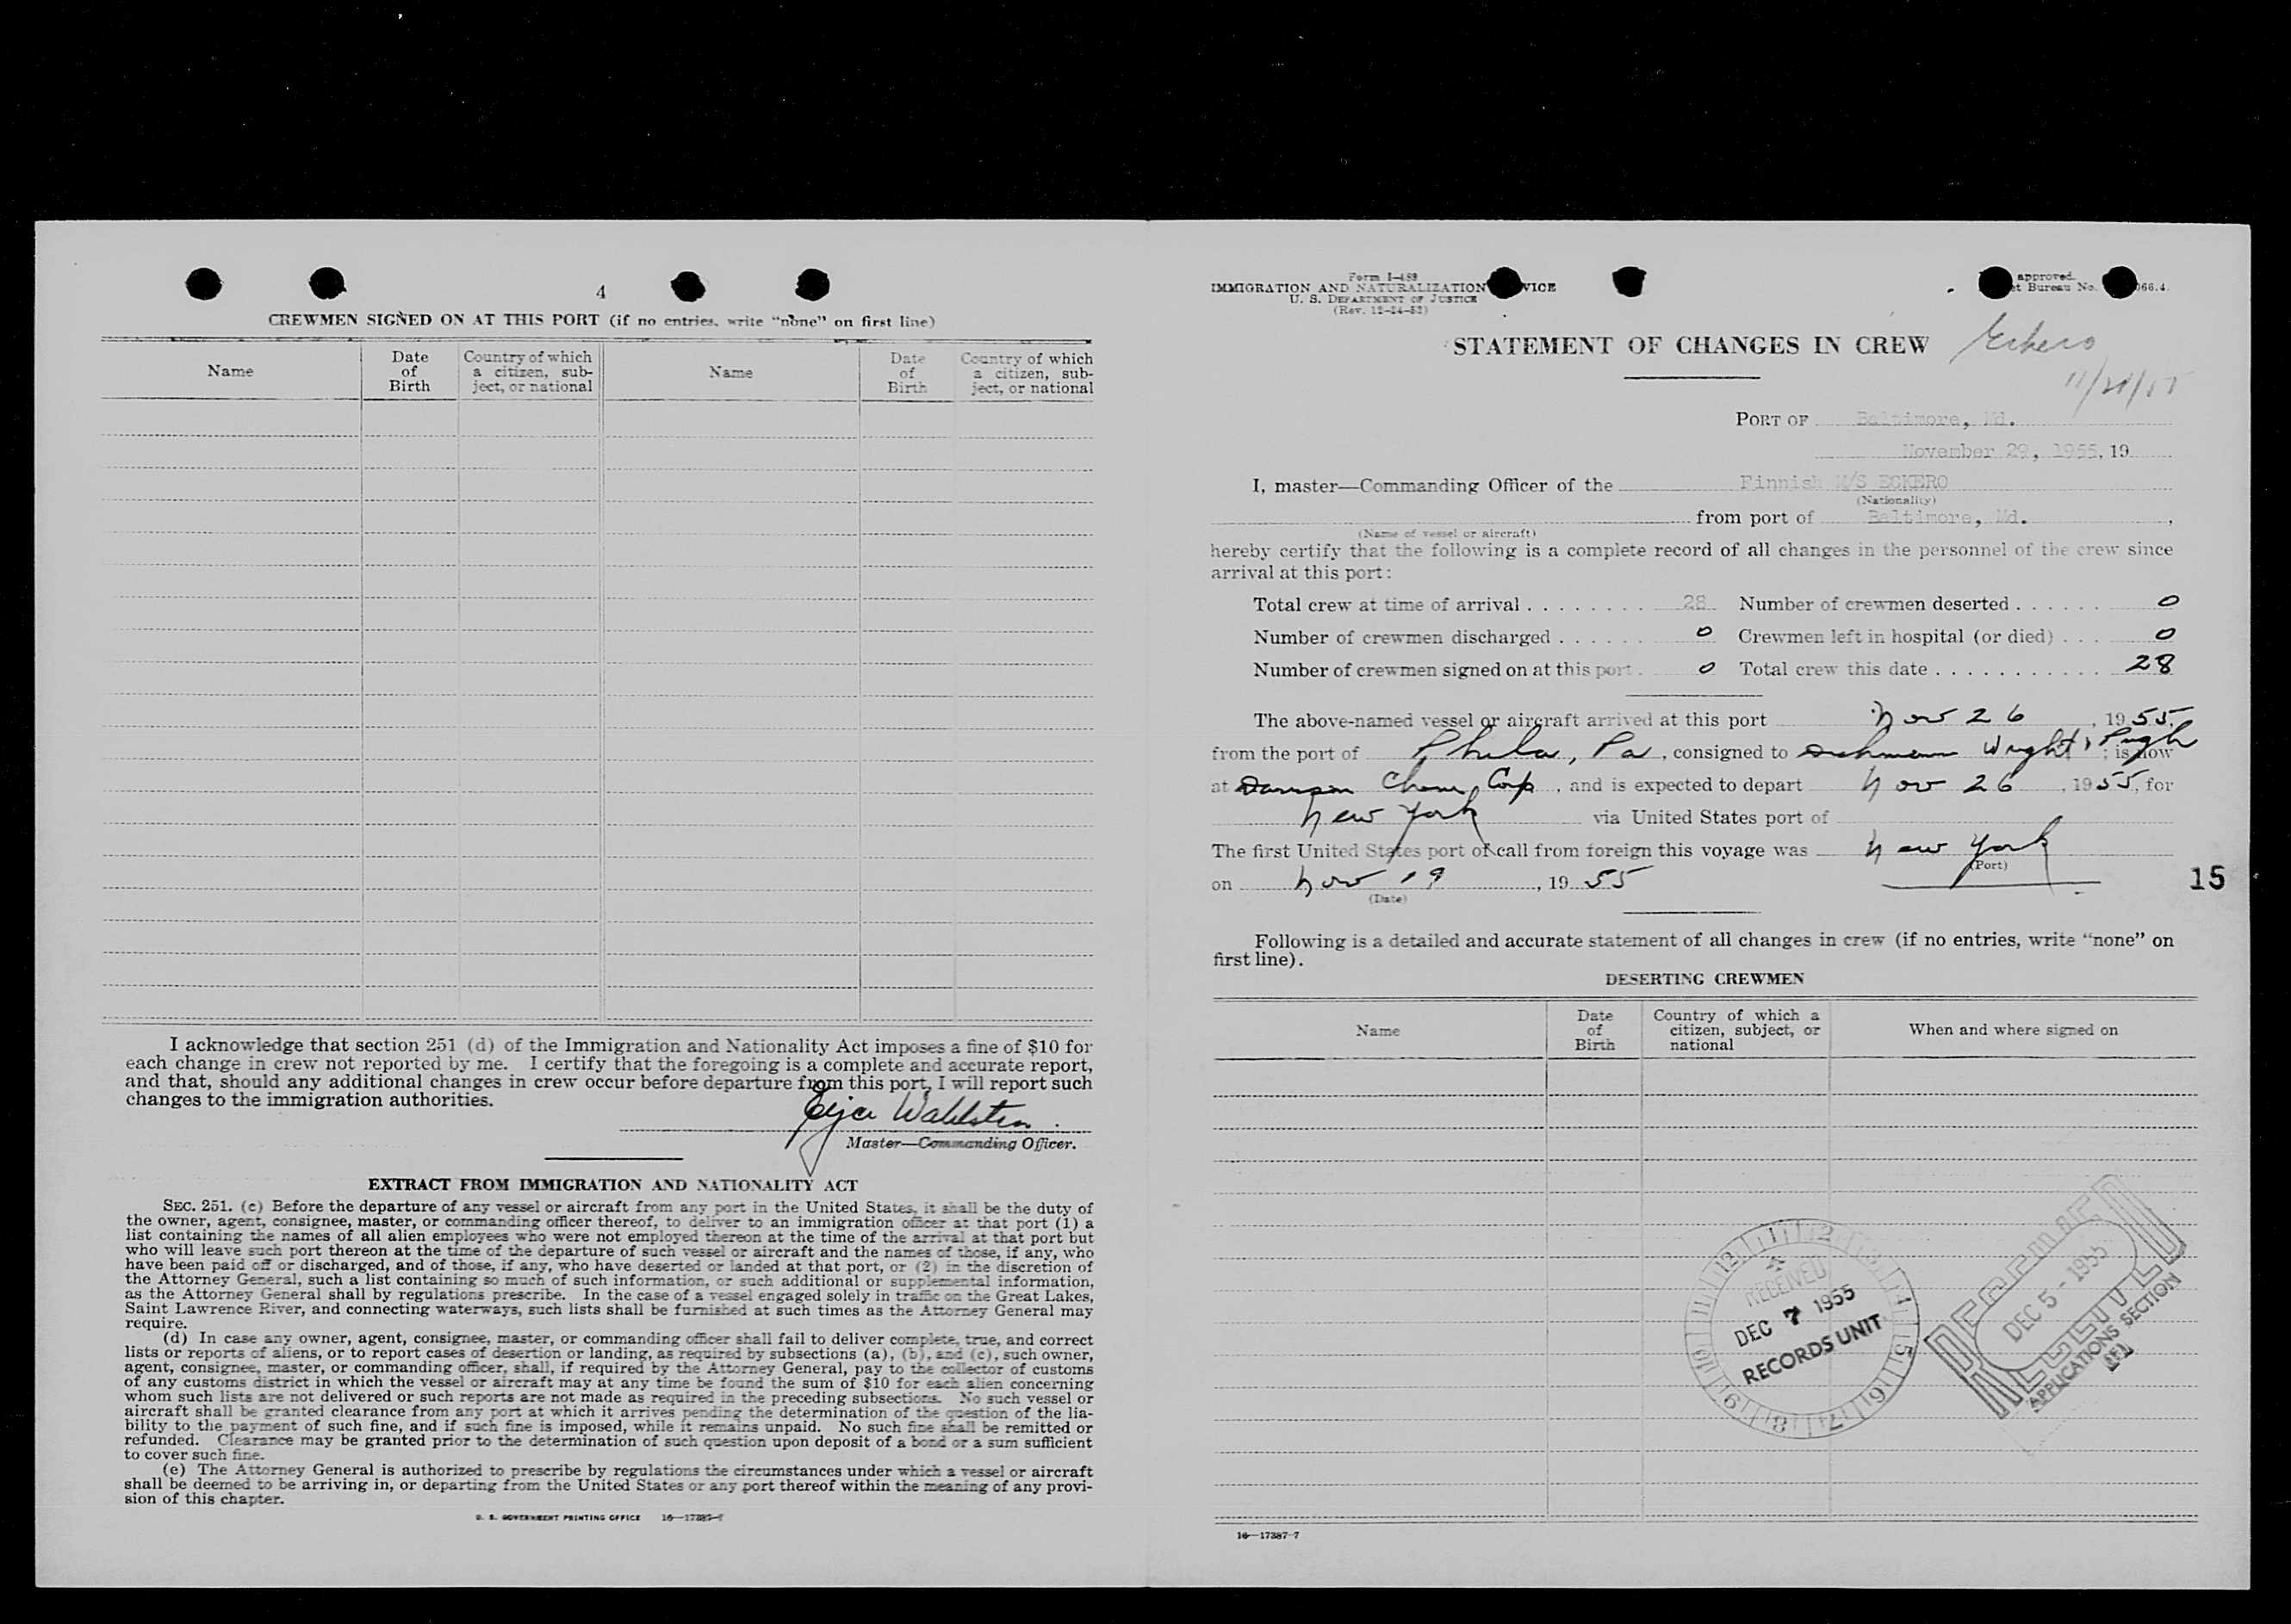 4
CREWMEN SIGNED ON AT THIS PORT (if no entries, write "none" on first line)
Name
Date of Birth
Country of which a citizen, subject, or national
Name
Date of Birth
Country of which a citizen, subject, or national
I acknowledge that section 251 (d) of the Immigration and Nationality Act imposes a fine of $10 for
each change in crew not reported by me. I certify that the foregoing is a complete and accurate report,
and that, should any additional changes in crew occur before departure from this port, I will report such
changes to the immigration authorities.
Master—Commanding Officer.
EXTRACT FROM IMMIGRATION AND NATIONALITY ACT
SEC. 251. (c) Before the departure of any vessel or aircraft from any port in the United States, it shall be the duty of
the owner, agent, consignee, master, or commanding officer thereof, to deliver to an immigration officer at that port (1) a
list containing the names of all alien employees who were not employed thereon at the time of the arrival at that port but
who will leave such port thereon at the time of the departure of such vessel or aircraft and the names of those, if any, who
have been paid off or discharged, and of those, if any, who have deserted or landed at that port, or (2) in the discretion of
the Attorney General, such a list containing so much of such information, or such additional or supplemental information,
as the Attorney General shall by regulations prescribe. In the case of a vessel engaged solely in traffic on the Great Lakes,
Saint Lawrence River, and connecting waterways, such lists shall be furnished at such times as the Attorney General may
require.
(d) In case any owner, agent, consignee, master, or commanding officer shall fail to deliver complete, true, and correct
lists or reports of aliens, or to report cases of desertion or landing, as required by subsections (a), (b), and (c), such owner,
agent, consignee, master, or commanding officer, shall, if required by the Attorney General, pay to the collector of customs
of any customs district in which the vessel or aircraft may at any time be found the sum of $10 for each alien concerning
whom such lists are not delivered or such reports are not made as required in the preceding subsections. No such vessel or
aircraft shall be granted clearance from any port at which it arrives pending the determination of the question of the lia-
bility to the payment of such fine, and if such fine is imposed, while it remains unpaid. No such fine shall be remitted or
refunded. Clearance may be granted prior to the determination of such question upon deposit of a bond or a sum sufficient
to cover such fine.
(e) The Attorney General is authorized to prescribe by regulations the circumstances under which a vessel or aircraft
shall be deemed to be arriving in, or departing from the United States or any port thereof within the meaning of any provi-
sion of this chapter.
U. S. GOVERNMENT PRINTING OFFICE 16—17387-7
Form I-489
IMMIGRATION AND NATURALIZATION VICE
U. S. DEPARTMENT OF JUSTICE
(Rev. 12-24-52)
approved.
et Bureau No. 066.4.
STATEMENT OF CHANGES IN CREW
Eckero
PORT OF Baltimore, Md.
November 29, 1955, 19
I, master—Commanding Officer of the Finnish M/S ECKERO
(Nationality)
from port of Baltimore, Md.,
(Name of vessel or aircraft)
hereby certify that the following is a complete record of all changes in the personnel of the crew since
arrival at this port:
Total crew at time of arrival 28 Number of crewmen deserted 0
Number of crewmen discharged 0 Crewmen left in hospital (or died) 0
Number of crewmen signed on at this port 0 Total crew this date 28
The above-named vessel or aircraft arrived at this port Nov 26, 1955,
from the port of Phila, Pa, consigned to Wright & Pugh; is now
at Corp, and is expected to depart Nov 26, 1955, for
New York via United States port of
The first United States port of call from foreign this voyage was New York
(Port)
on Nov 19, 1955
(Date)
15
Following is a detailed and accurate statement of all changes in crew (if no entries, write "none" on
first line).
DESERTING CREWMEN
Name
Date of Birth
Country of which a citizen, subject, or national
When and where signed on
RECEIVED
DEC 7 1955
RECORDS UNIT
RECEIVED
DEC 5 - 1955
APPLICATIONS SECTION
16—17387-7